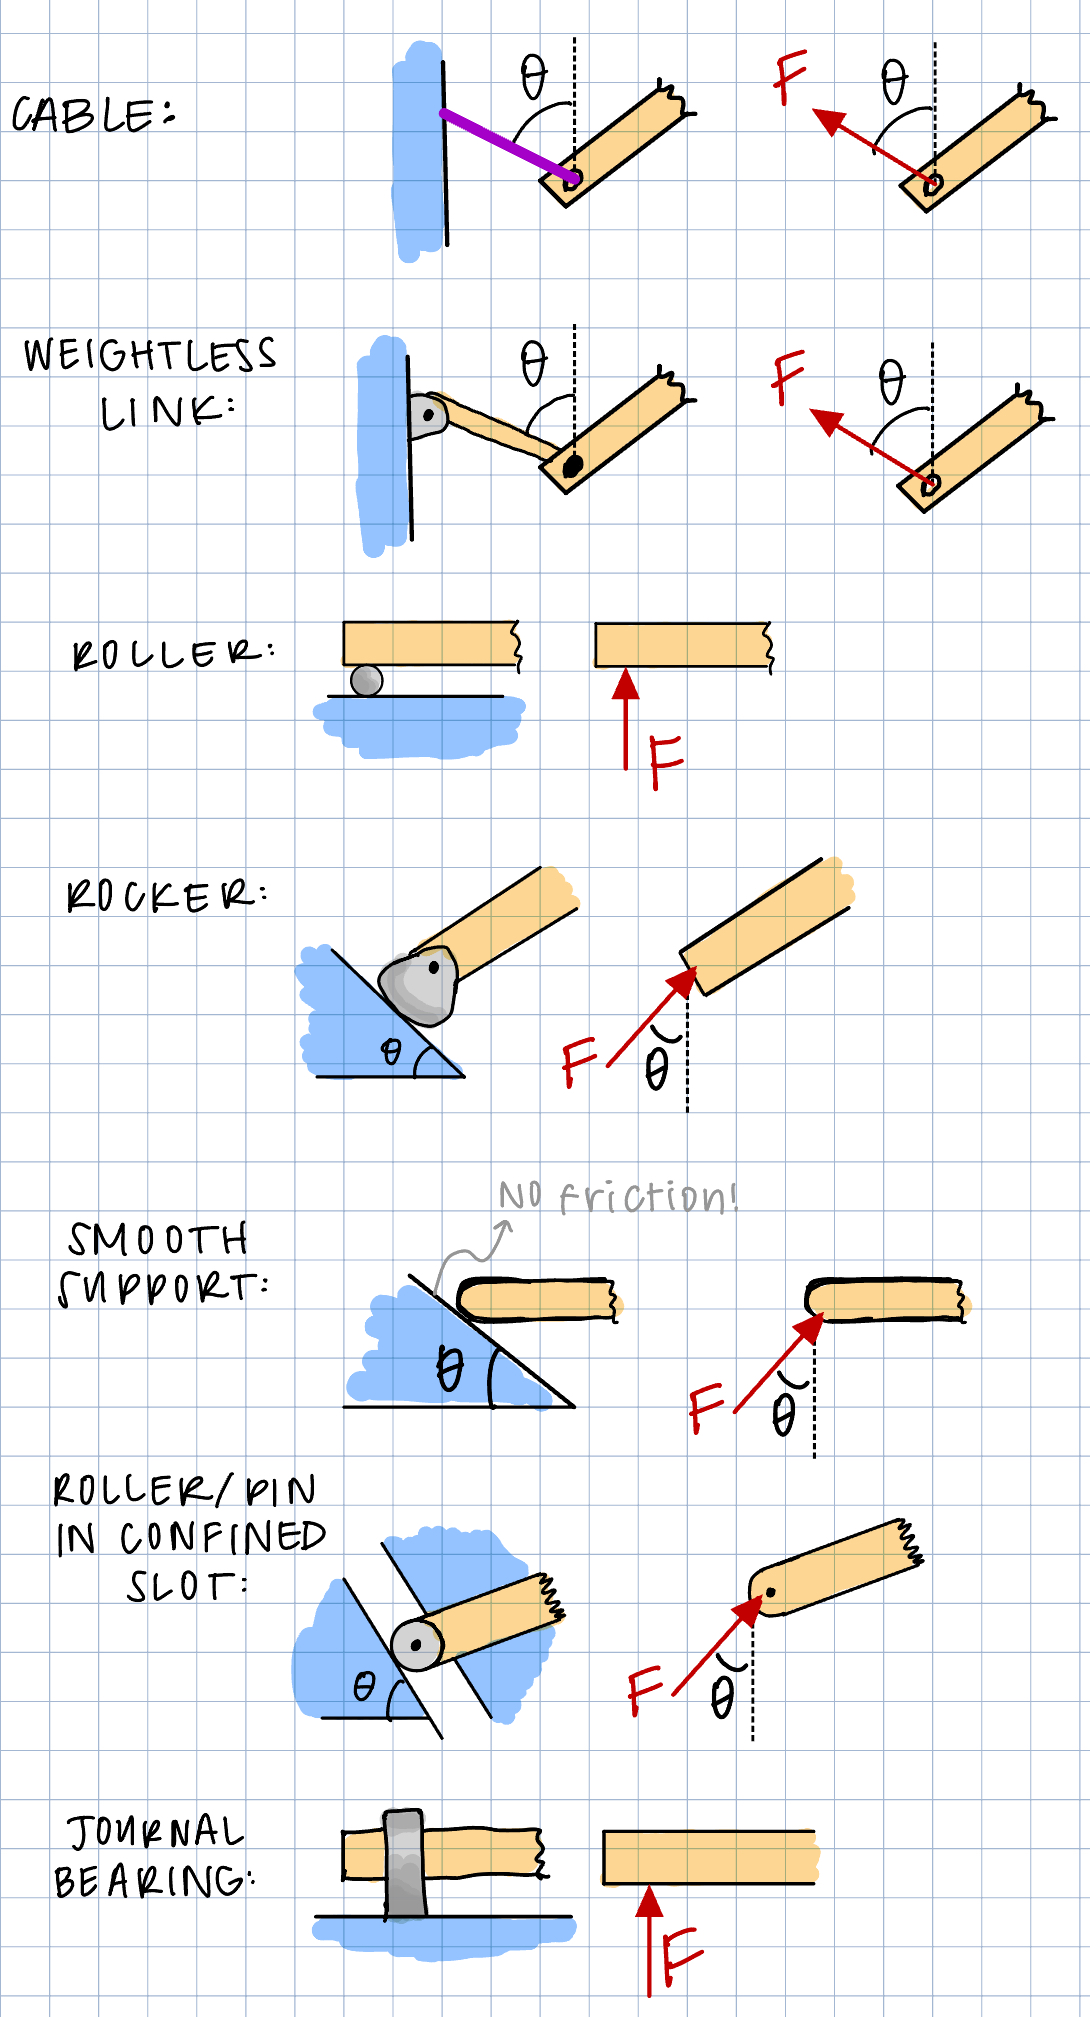 CABLE:
θ
F
θ
WEIGHTLESS
LINK:
θ
F
θ
ROLLER:
F
ROCKER:
θ
F
θ
NO friction!
SMOOTH
SUPPORT:
θ
F
θ
ROLLER/PIN
IN CONFINED
SLOT:
θ
F
θ
JOURNAL
BEARING:
F